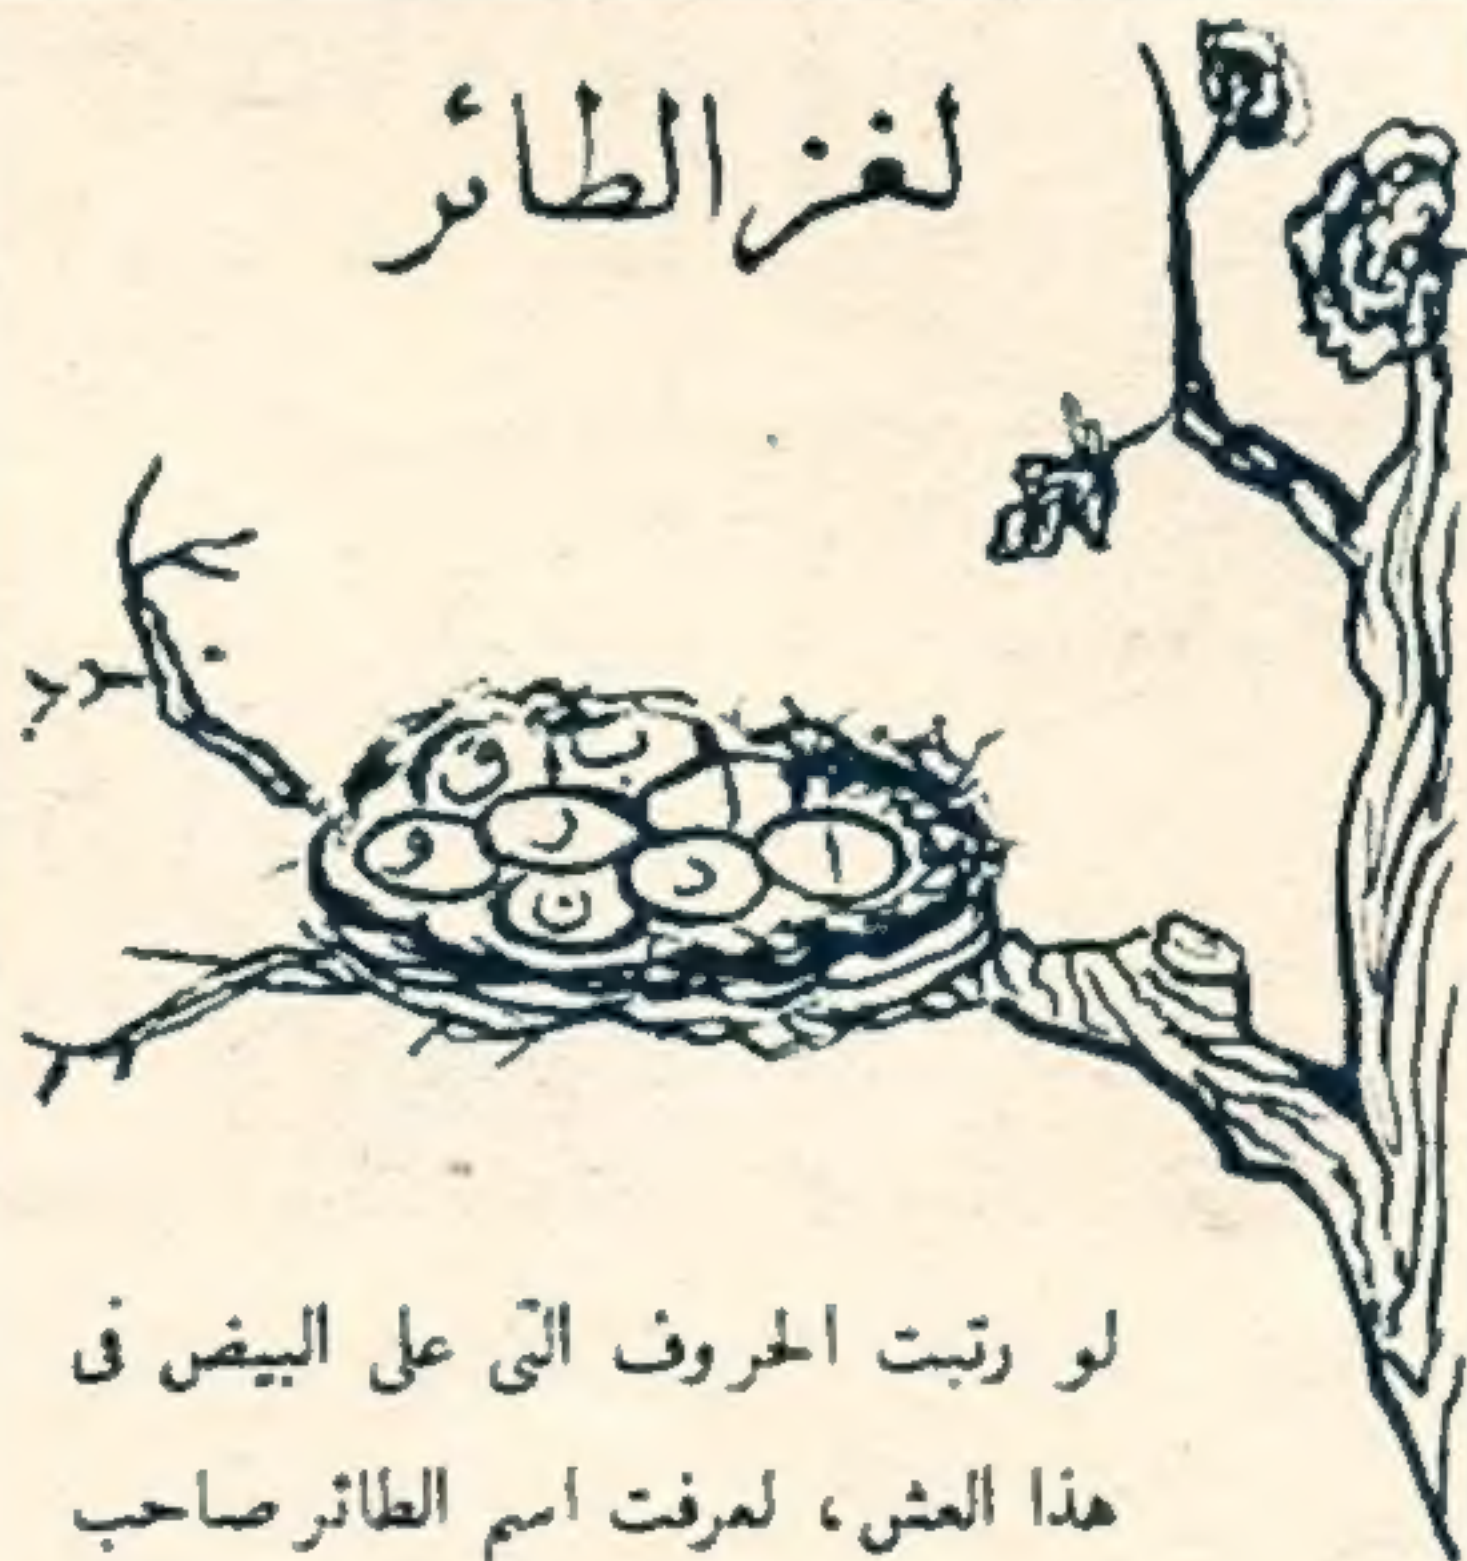 لغز الطائر
ب ق
ا ا
د ر و
ن
لو رتبت الحروف التى على البيض فى
هذا العش، لعرفت اسم الطائر صاحب